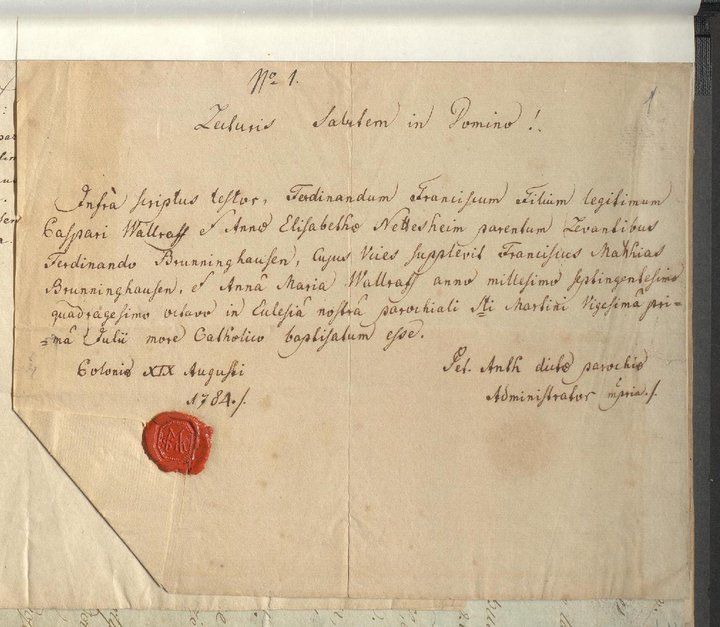 No 1.
1
Lecturis Salutem in Domino!
Infrà scriptus testor, Ferdinandum Franciscum Filium legitimum
Caspari Wallraff & Annæ Elisabethæ Nettesheim parentum Levantibus
Ferdinando Brunninghausen, Cujus Vices supplevit Franciscus Mathias
Brunninghausen, & Annâ Maria Wallraff anno millesimo septingentesimo
quadragesimo octavo in Ecclesiâ nostrâ parochiali Sti Martini Vigesimâ pri=
=mâ Julii more Catholico baptisatum esse.
Coloniæ XIX Augusti
1784./.
Pet. Anth dictæ parochiæ
Administrator mpria./.